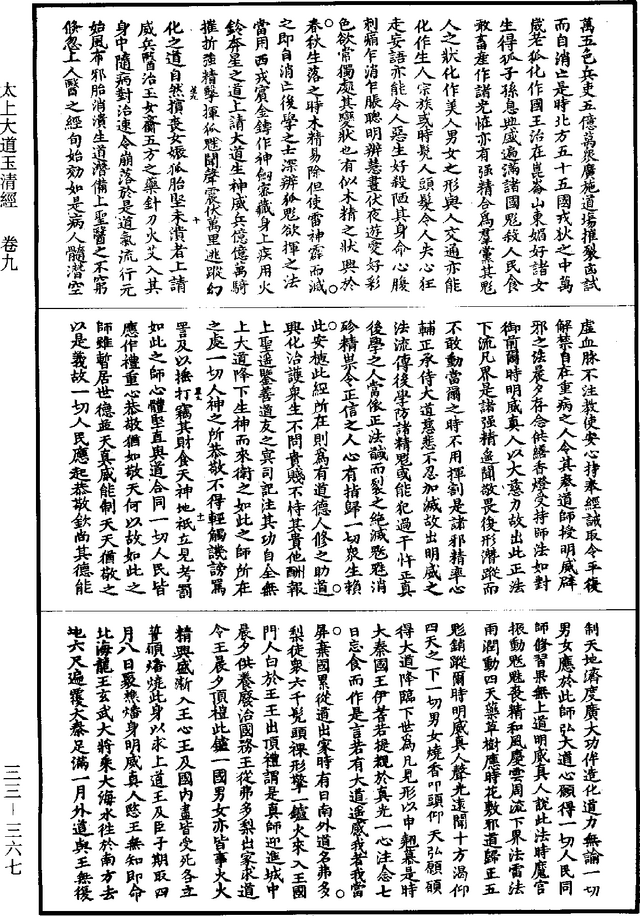 萬五色兵吏五億萬衆廣施道場摧裂㐫試
而自消亡是時北方五十五國戎狄之中萬
歲老狐化作國王治在崑崙山東媚好諸女
生得狐子孫息典盛遍滿諸國魁殺人民食
敢畜產作諸光怪亦有强精合為羣黨其魁
人之狀化作美人男女之形與人交通亦能
化作生人宗族或時髠人頭髮令人失心狂
走妄語亦能令人惡生好殺陋其身命心腹
刺痛乍消乍脹聰明辯慧晝伏夜遊愛好彩
色欲常獨處其變狀也有似木精之狀興於
春秋生落之時木精易除但使雷神霹而滅
之即自消亡後學之士深辨狐魁欲揮之法
當用西戎賓金鑄作神劒密藏身上疾用火
鈴奔星之道上請大道生神威兵億億萬騎
摧折强精擊揮狐魁聞聲震伏萬里逃蹤幻
化之道自然損喪女娠狐胎堅未潰者上請
威兵醫治玉女齎五方之藥針刀火艾入其
身中隨病對治速令崩落於是道氣流行元
始風布邪胎消潰生道漸備上聖醫之不窮
倏忽上人醫之經旬始効如是病人髓潛空
虛血脉不注教使安心持奉經誡取令平復
解禁自在重病之人令其奉道師授明威碎
邪之法晨夕存念供繕香燈受持師法如對
御前爾時明威真人以大慈力故出此正法
下流凡界是諸强精遥聞敬畏後形潛蹤而
不敢動當爾之時不用揮割是諸邪精率心
輔正承侍大道慈悲不忍加滅故出明威之
法流傳後學防諸精魁或能犯過干忤正真
後學之人當依正法誠而裂之絕滅魁魁消
殄精祟令正信之人心有指歸一切衆生賴
此安穩此經所在則為有道德人修之助道
興化治護衆生不問貴賤不恃其貴他酬報
上聖遥鑒善道友之冥司記注其功自全無
上大道降下生神而來衛之如此之師所在
之處一切人神之所恭敬不得輕觸譏謗罵
詈及以捶打竊其財食天神地祇立見考罰
如此之師心體堅直與道合同一切人民皆
應作禮重心恭敬猶如敬天何以故如此之
師雖暫居世德並天真威能制天天猶敬之
以是義故一切人民應起恭敬欽尚其德能
制天地濟度廣大功侔造化道力無諭一切
男女應於此師弘大道心願得一切人民同
師修習果無上道明威真人說此法時魔宫
振動魁魁喪精和風慶雲周流下界法雷法
雨潤動四天藥草樹應時花敷邪道歸正五
魁銷蹤爾時明威真人聲光遠聞十方渴仰
四天之下一切男女燒香叩頭仰天弘願願
得大道降臨下世為凡見形以申翹慕是時
大秦國王伊耆若提觀於真光一心注念七
日忘食而作是言若有大道遥感我者我當
屏棄國累從道出家時有日南外道名弗多
梨徒衆六千髠頭裸形擎一鑪火來入王國
門人白於王王出頂禮謂是真師迎進城中
晨夕供養廢治國務王從弗多梨出家求道
令王晨夕頂禮此鑪一國男女亦皆事火火
精興盛漸入王心王及國内盡皆受死各立
誓願燔燒此身以求上道王及臣子期取四
月八日聚樵燔身明威真人愍王無知即命
北海龍王玄武大將乘大海水往於南方去
地六尺遍覆大秦足滿一月外道與王無復
太上大道玉清經　卷九
三三—三六七